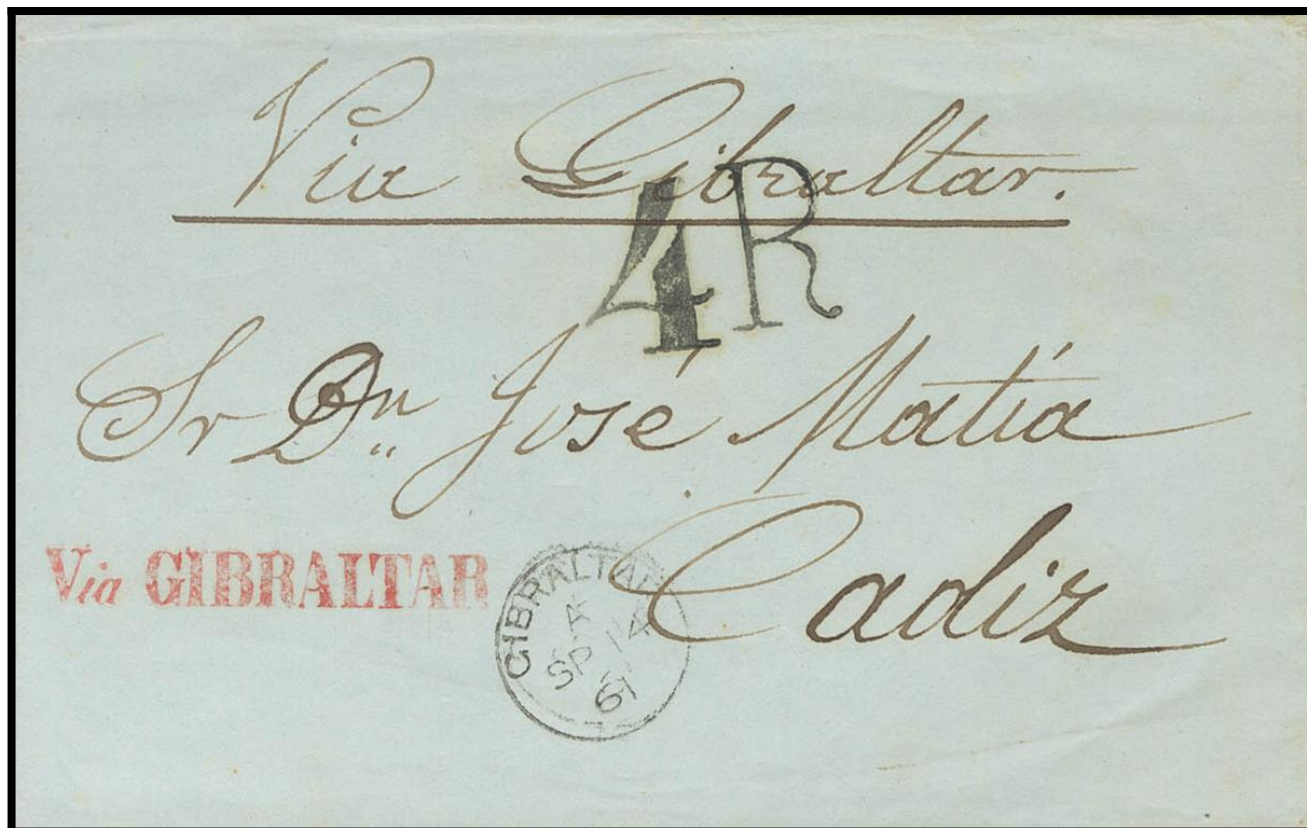 Via Gibraltar.
4R
Sr Dn José Matía
Cadiz
Via GIBRALTAR
GIBRALTAR
A
SP 14
61